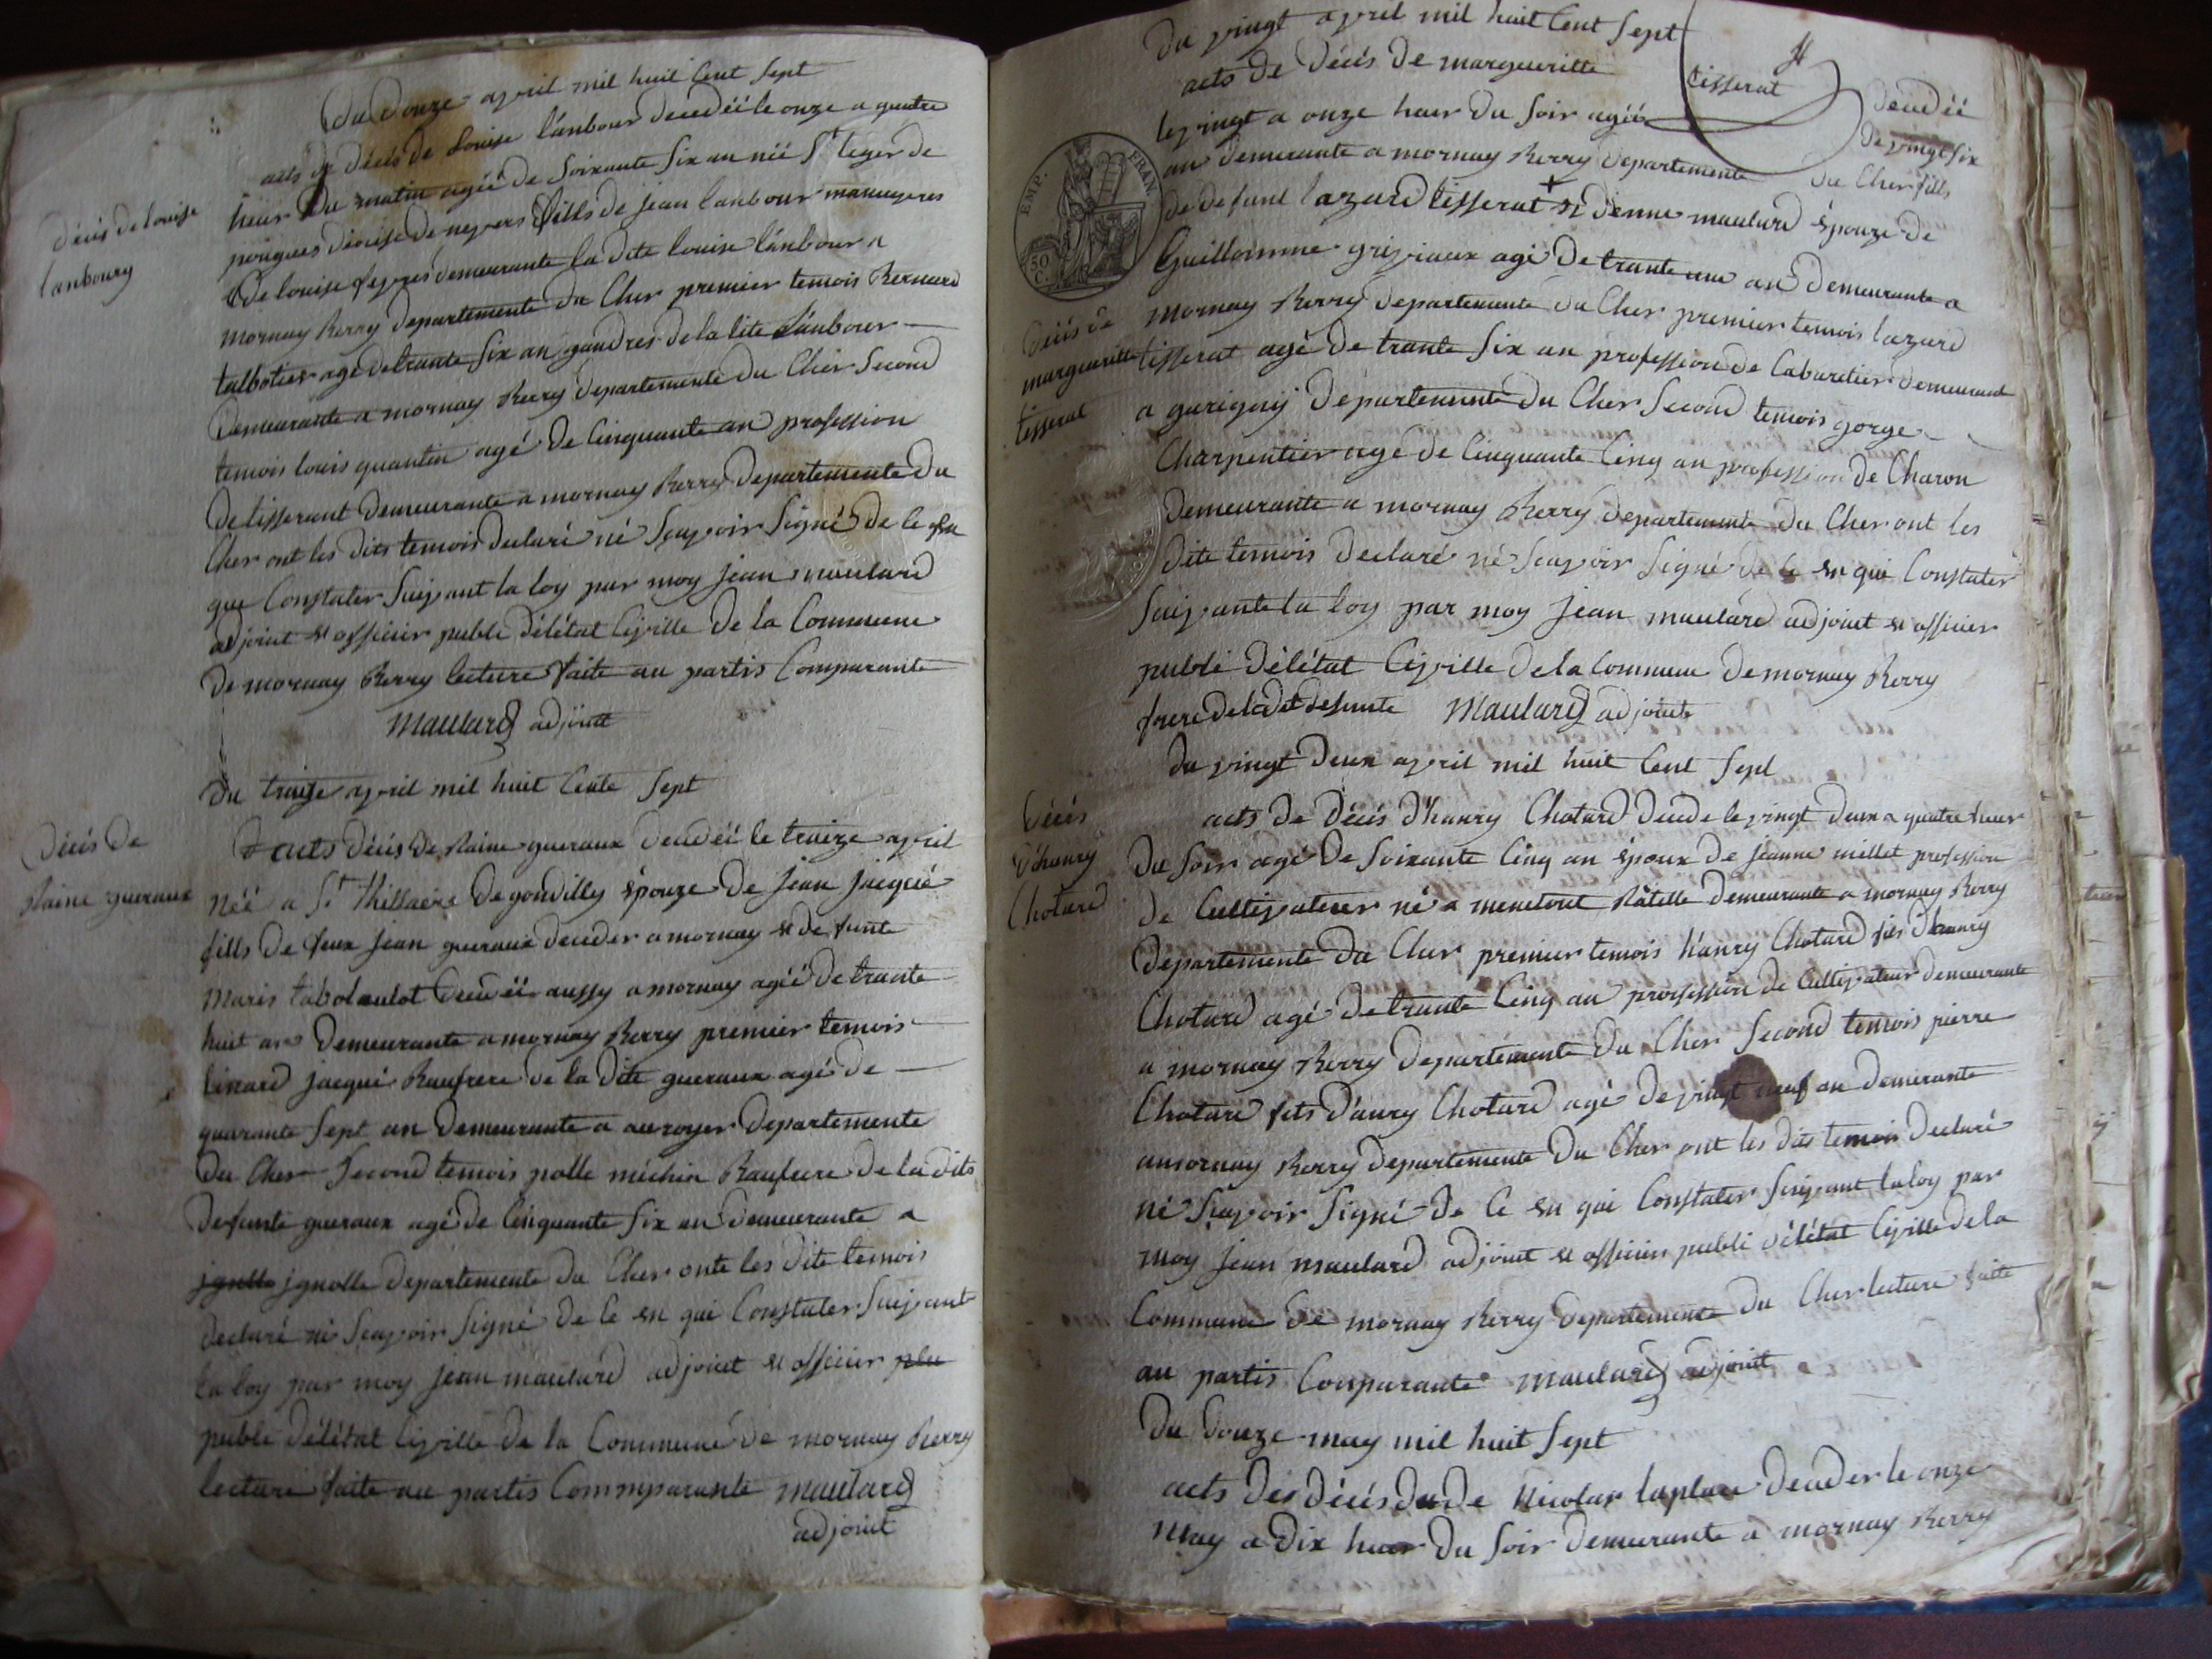 Du Douze april mil huil Cent Sept
acts de décés de Louise lánbour decedéé le onze a quatre
heur du matin agéé de soixante six an néé St leger de
pougues diocise de nevers fills de jean lanbour manuvres
& de louise fevres demeurante la dite louise lánbour a
mornay Berry departemente du Cher premier temois Bernard
talbotier agé de trante six an gandres de la dite lánbour
Demeurante a mornay Berry departemente du Cher second
temois louis quantin agé de Cinquante an profession
de tisserant demeurante a mornay Berry departemente du
Cher ont les dits temois declaré né sçavoir signé de ce
que Constater suivant la loy par moy jean maulard
adjoint et officier publi délétat Civille de la Commune
de mornay Berry lecture faite au partis Comparante
Maulard adjoint
décés de louise
lanboury
Du traize april mil huit Cente Sept
acts décés de Raine gueraux decedéé le traize april
néé a St hillaire de gondilly épouze de jean jacqué
fills de feux jean gueraux deceder a mornay et defunte
Maris tabolaulot decedéé aussy a mornay agéé de trante
huit an demeurante a mornay Berry premier temois
linard jacqué Baufrere de la dite gueraux agé de
quarante sept an demeurante a auroyer departemente
du Cher second temois polle méchin Baufrere de la dite
defunte gueraux agé de Cinquante six an demeurante a
jgnolle departemente du Cher onte les dite temois
declaré né sçavoir signé de ce en qui Constater suivant
la loy par moy jean maulard adjoint et officier plu
publi délétat Civille de la Commune de mornay Berry
lecture faite au partis Commparante Maulard
adjoint
Décés de
Raine gueraux
Du vingt april mil huit Cent Sept
acts de décés de margueritte tisserat decedéé
le vingt a onze heur du soir agéé de vingt six
an demeurante a mornay Berry departemente du Cher fills
de defunt lazard tisserat et dienne maulard épouze de
Guillomme griviaux agé de trante une an demeurante a
mornay Berry departemente du Cher premier temois lazard
tisserat agé de trante six an profession de Cabaretier demeurant
a garigny departemente du Cher second temois gorge
Charpentier agé de Cinquante Cinq an profession de Charon
demeurante a mornay Berry departemente du Cher ont les
dite temois declaré né sçavoir signé de ce en qui Constater
suivante la loy par moy jean maulard adjoint et officier
publi délétat Civille de la Commune de mornay Berry
frere de la dit defunte Maulard adjoint
EMP. FRAN.
50 C.
Décés de
margueritte
tisserat
du vingt deux april mil huit Cent Sept
acts de décés d'hanry Chotard decede le vingt deux a quatre heur
du soir agé de soixante Cinq an époux de jeanne millet profession
de Cultivateur né a menetout Râtelle demeurante a mornay Berry
departemente du Cher premier temois hanry Chotard fils d'hanry
Chotard agé de trante Cinq an profession de Cultivateur demeurante
a mornay Berry departemente du Cher second temois pierre
Chotard fils d'anry Chotard agé de vingt neuf an demeurante
a mornay Berry departemente du Cher ont les dits temois declaré
né sçavoir signé de ce en qui Constater suivant la loy par
moy jean maulard adjoint et officier publi délétat Civille de la
Commune de mornay Berry departemente du Cher lecture faite
au partis Comparante Maulard adjoint
Décés
d'hanry
Chotard
Du Douze may mil huit Sept
acts des décés de Nicolas laplace deceder le onze
may a dix heur du soir demeurante a mornay Berry